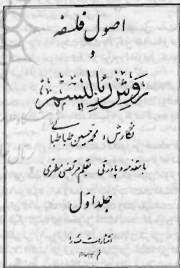 اصول فلسفه
و
روش رئالیسم
نگارش: محمد حسین طباطبائی
با مقدمه و پاورقی بقلم مرتضی مطهری
جلد اول
انتشارات صدرا